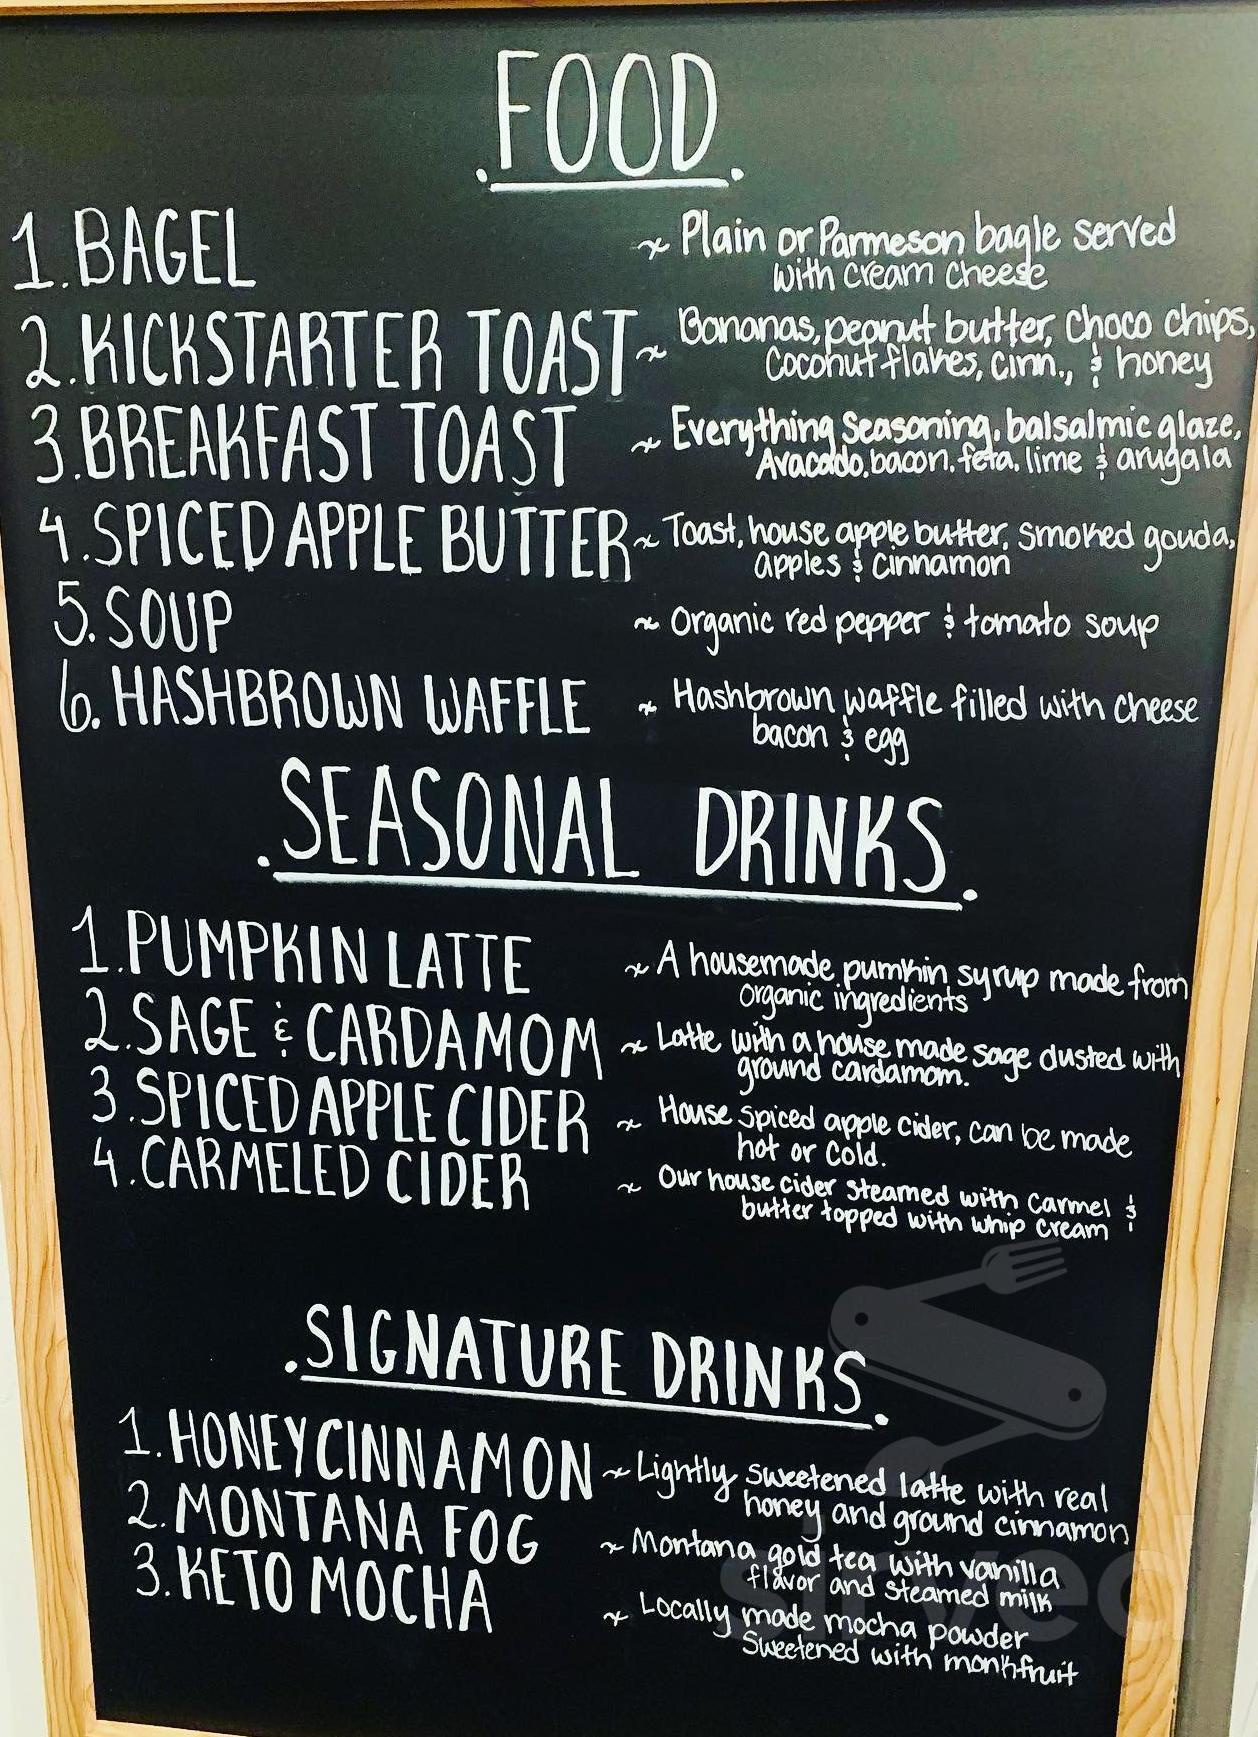 .FOOD.
1. BAGEL ~ Plain or Parmeson bagle served
with cream cheese
2. KICKSTARTER TOAST ~ Bananas, peanut butter, Choco chips,
Coconut flakes, cinn., & honey
3. BREAKFAST TOAST ~ Everything Seasoning, balsalmic glaze,
Avacado, bacon, feta, lime & arugala
4. SPICED APPLE BUTTER ~ Toast, house apple butter, smoked gouda,
apples & cinnamon
5. SOUP ~ Organic red pepper & tomato soup
6. HASHBROWN WAFFLE ~ Hashbrown waffle filled with cheese
bacon & egg
.SEASONAL DRINKS.
1. PUMPKIN LATTE ~ A housemade pumkin syrup made from
organic ingredients
2. SAGE & CARDAMOM ~ Latte with a house made sage dusted with
ground cardamom.
3. SPICED APPLE CIDER ~ House spiced apple cider, can be made
hot or cold.
4. CARMELED CIDER ~ Our house cider steamed with carmel &
butter topped with whip cream
.SIGNATURE DRINKS.
1. HONEY CINNAMON ~ Lightly sweetened latte with real
honey and ground cinnamon
2. MONTANA FOG ~ Montana gold tea with vanilla
flavor and steamed milk
3. KETO MOCHA ~ Locally made mocha powder
Sweetened with monkfruit
sirved